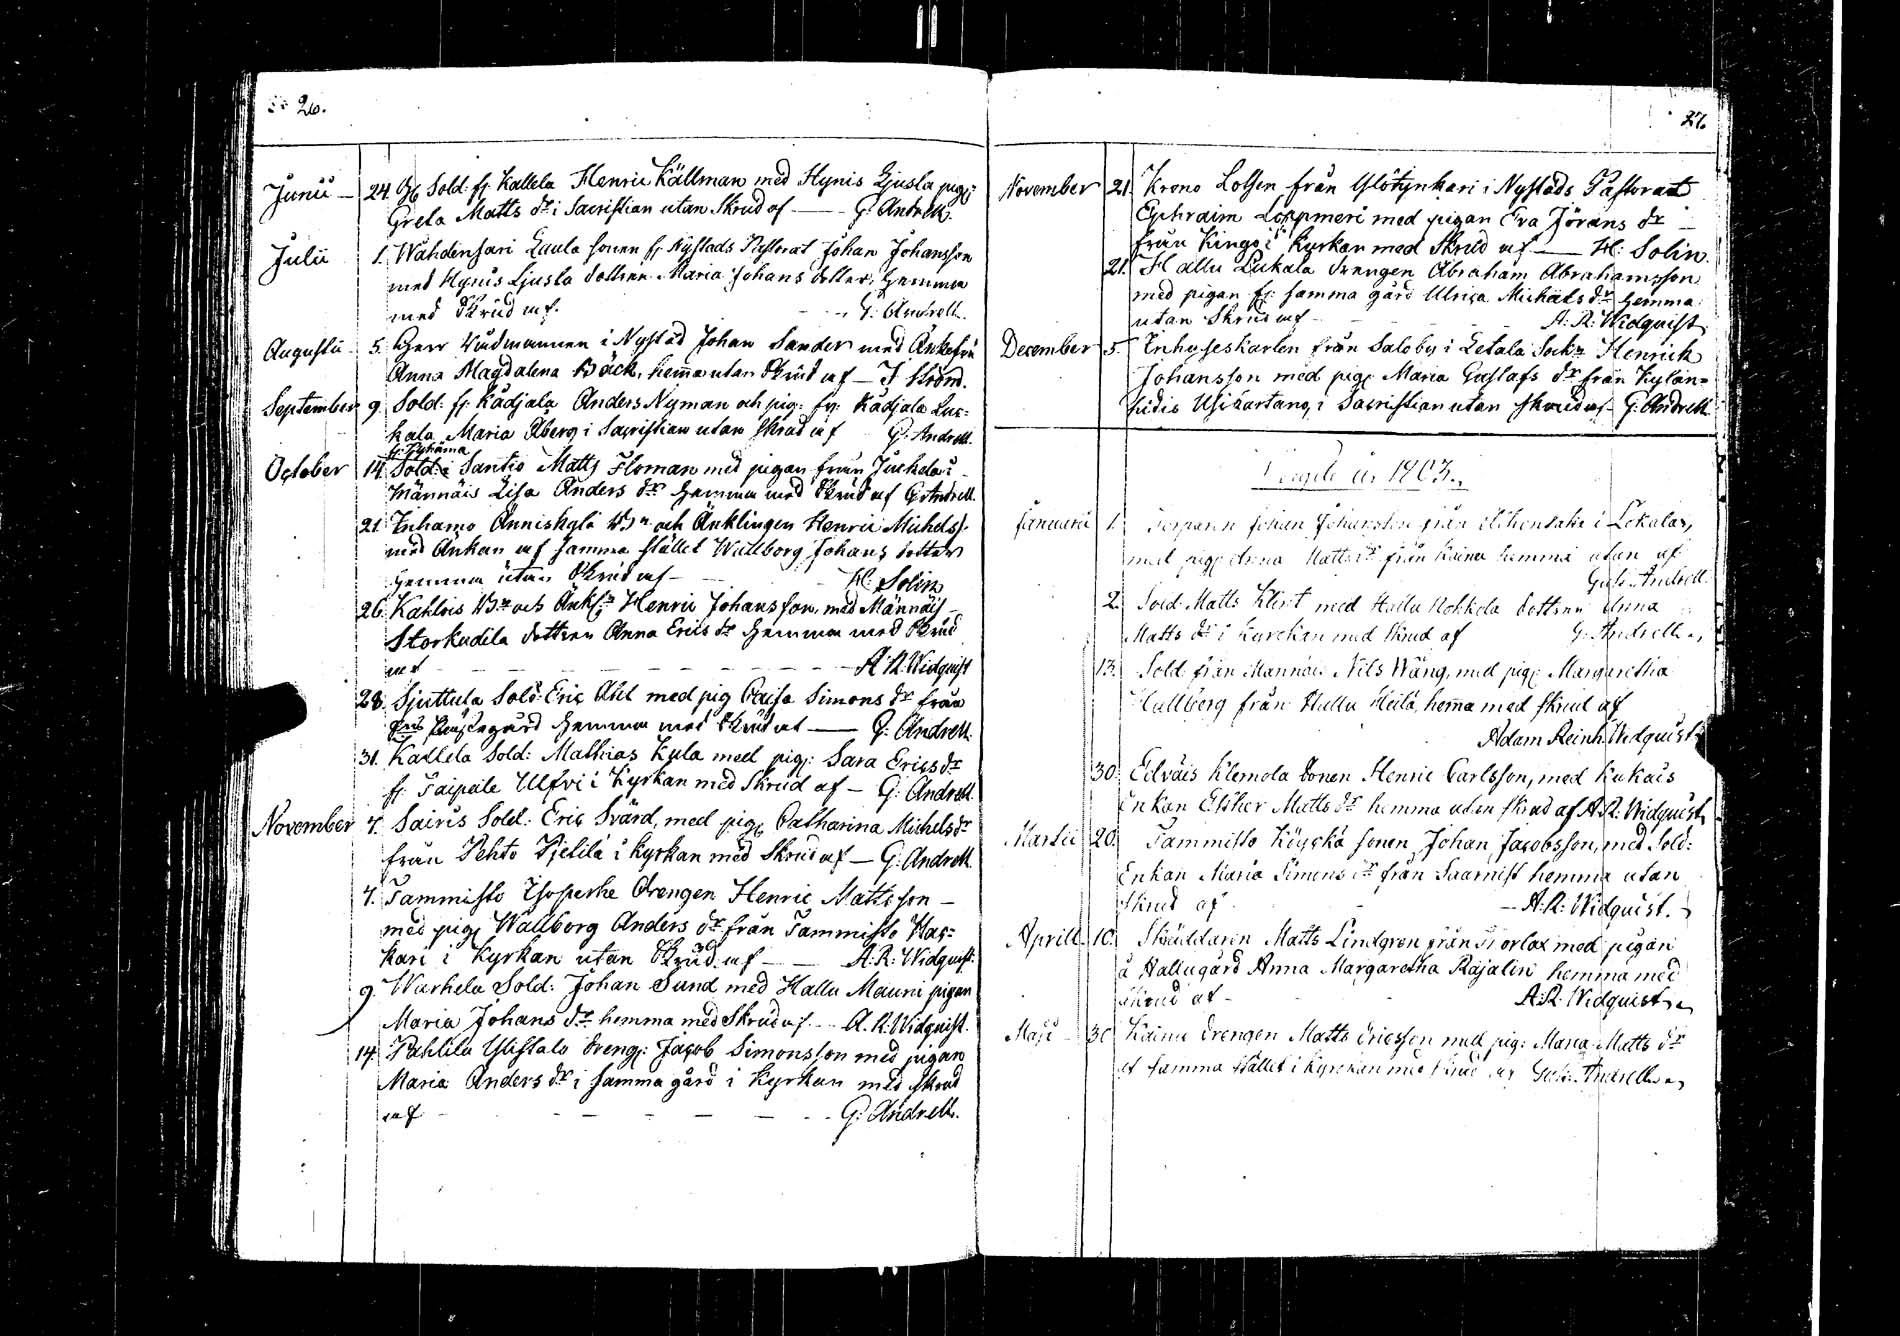 26.
Junii – 24. Sold: fr. Kallela Henric Källman med Hynis Ljusla pig:
Greta Matts dr i Sacristian utan Skrud af — G. Andrell.
Julii 1. Wahdensari Laula sonen fr Nystads Pastorat Johan Johansson
med Hynis Ljusla dottren Maria Johans dotter, hemma
med Skrud af. G. Andrell.
Augusti 5. Herr Rådmannen i Nystad Johan Sander med Änkefru
Anna Magdalena Bäck, hemma utan Skrud af – I Ström.
September 9. Sold: fr. Kådjala Anders Nyman och pig: fr: Kådjala Luc=
kala Maria Åberg i Sacristian utan skrud af G. Andrell.
fr. Pyhäma
October 14. Sold: i Santio Matts Floman med pigan från Juckola i
Männäis Lisa Anders dr hemma med Skrud af G. Andrell.
21. Inhamo Änniskylä Bn och Änklingen Henric Michelsf.
med Änkan af samma stället Wallborg Johans dotter
hemma utan Skrud af – H: Solin
26. Kahlois Bn och Änkl: Henric Johansson, med Männäis
Storkudila dottren Anna Erics dr hemma med Skrud
af – – – – – A. R. Widquist
28. Sjuttula Sold: Eric Ahl med pig Caisa Simons dr från
Prästegård hemma med Skrud af — G. Andrell.
31. Kallela Sold: Mathias Kula med pig: Sara Erics dr
fr. Taipale Ulfvi i Kyrkan med Skrud af – G: Andrell
November 7. Sairis Sold: Eric Svärd, med pig: Catharina Michels dr
från Pehto Pietilä i Kyrkan med Skrud af – G: Andrell.
7. Tammisto Isoperhe Drengen Henric Mattsson –
med pig: Wallborg Anders dr från Tammisto Hac=
kari i Kyrkan utan Skrud af – — A: R: Widquist.
9. Warhela Sold: Johan Sund med Hallu Mauni pigan
Maria Johans dr hemma med Skrud af – A. R. Widquist.
14. Pahlila Ylistalo dreng: Jacob Simonsson med pigan
Maria Anders dr i samma gård i Kyrkan med skrud
af – – – – – G: Andrell.
27.
November 21. Krono Lotsen från Ylötynkari i Nystads Pastorat
Ephraim Loppmeri med pigan Eva Jörans dr –
från Kings i Kyrkan med Skrud af — H: Solin.
21. Hallu Pukala drengen Abraham Abrahamsson
med pigan fr: samma gård Ulrica Michels dr hemma
utan Skrud af – A: R: Widquist
December 5. Inhyseskarlen från Saloby i Letala Sockn Henrick
Johansson med pig: Maria Gustafs dr från Kylän=
pidis Usicartano i Sacristian utan skrud af – G. Andrell
Vigde år 1803.
Januarii 1. Torparen Johan Johansson från i Lokalax,
med pig: Anna Matts dr från Kainu hemma utan af
Gust: Andrell.
2. Sold Matts Klint med Hallu Kokkola dottren Anna
Matts dr i kyrckan med skrud af G. Andrell
13. Sold från Mannäis Nils Wäng, med pig: Margaretha
Hallberg från Hallu Heila, hemma med skrud af
Adam Reinh. Widquist
30 Edväis Klemola sonen Henric Carlsson, med Kukais
Enkan Esther Matts dr hemma utan skrud af A.R: Widquist
Martii 20. Tammisto Köyckä sonen Johan Jacobsson, med Sold:
Enkan Maria Simons dr från Saarnist hemma utan
Skrud af – A: R: Widquist.
Aprill 10. Skräddaren Matts Lindgren från Torlax med pigan
å Hallugård Anna Margaretha Rajalin hemma med
skrud af – A: R: Widquist
Maji 30 Kainu drengen Matts Ericsson med pig: Maria Matts dr
af samma stället i kyrckan med skrud af Gust: Andrell